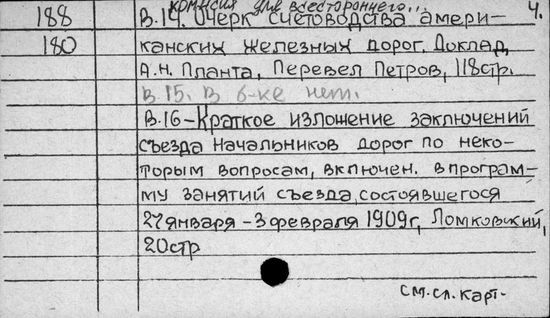 комиссия для всестороннего... 4.
188 В.14. Очерк счетоводства амери-
180 канских железных дорог. Доклад,
А.Н. Планта, Перевел Петров, 118стр.
В.15. В б-ке нет.
В.16-Краткое изложение заключений
съезда начальников дорог по неко-
торым вопросам, включен. в програм-
му занятий съезда, состоявшегося
27января-3февраля 1909г, Ломковский,
20стр
см.сл.карт-